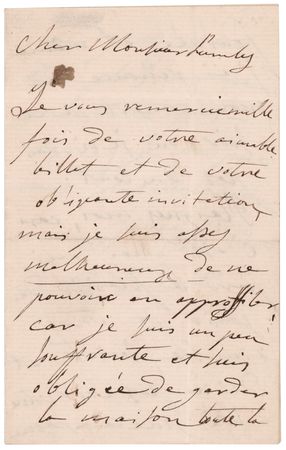 Cher Monsieur
Je vous remercie mille
fois de votre aimable
billet et de votre
obligeante invitation,
mais je suis assez
malheureuse de ne
pouvoir en approfiter
car je suis un peu
souffrante et suis
obligée de garder
la maison toute la